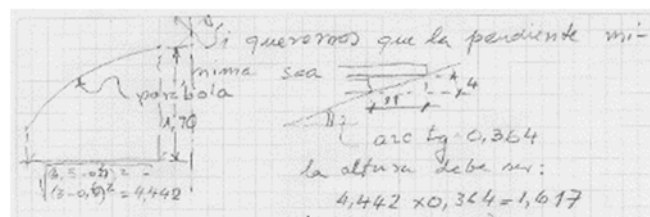 Si queremos que la pendiente mí-
nima sea
parábola
1,70
4
11
arc tg 0,364
la altura debe ser:
(3,5-0,4)² =
(3-0,4)² = 4,442
4,442 x 0,364 = 1,617